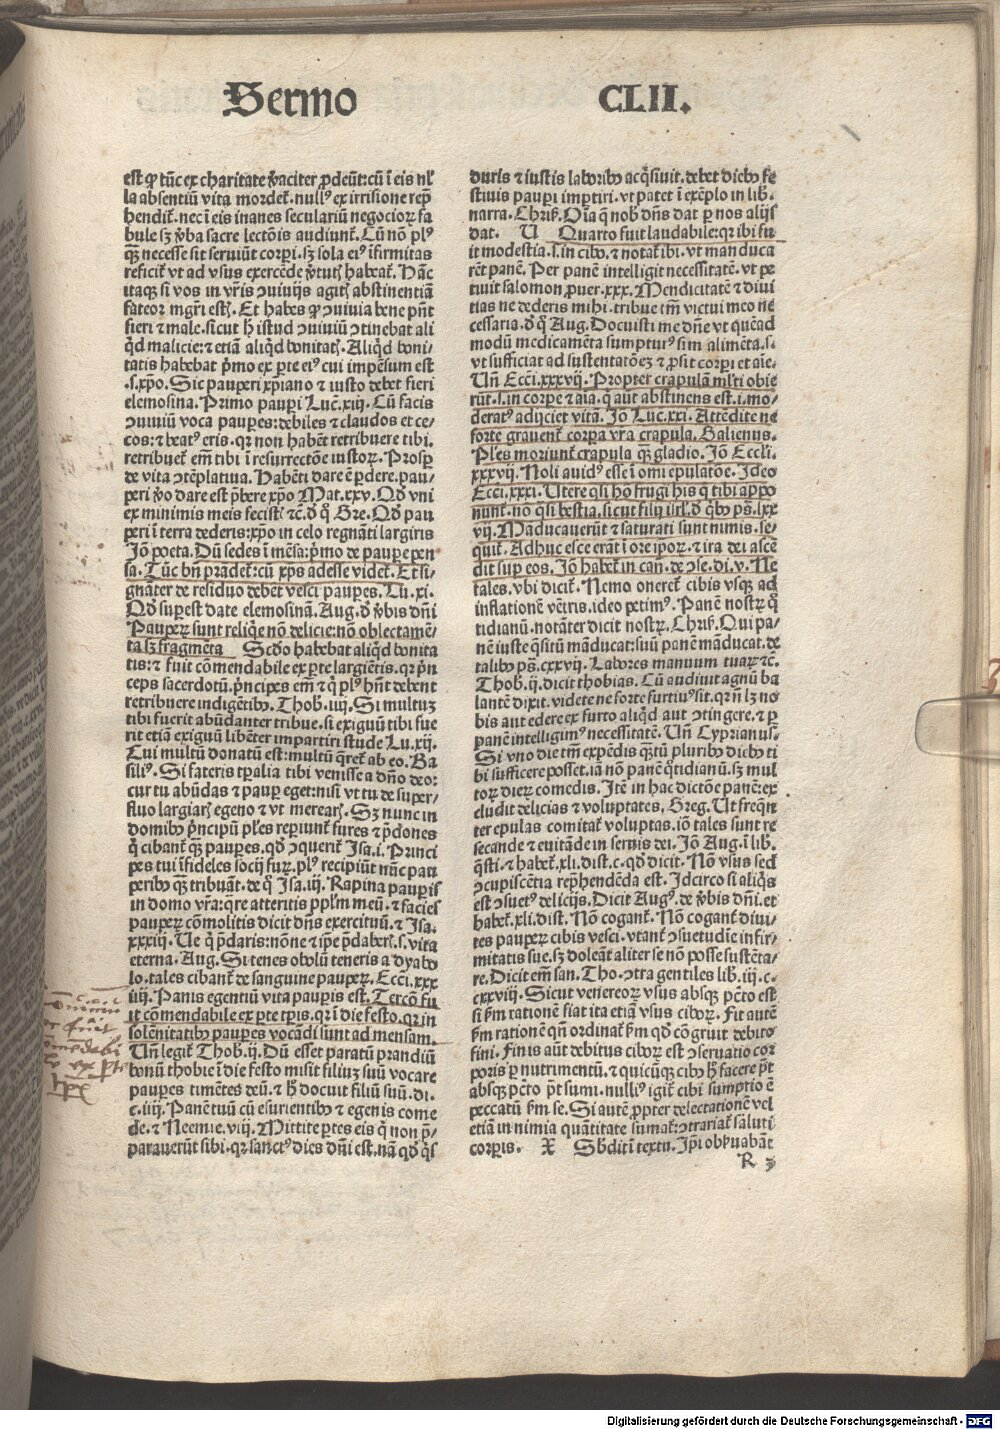 Sermo CLII.
est qp tūc ex charitate v̄aciter p̱deūt: cū ī eis nl̕
la absentiū vita mordet̄. null᷒ ex irrisione rep̄
hendit̄. nec ī eis inanes seculariū negocioꝝ fa
bule sꝫ v̄ba sacre lectōis audiunt̄. Cū nō pl᷒
qꝫ necesse sit seruiūt corpi. sꝫ sola ei᷒ īfirmitas
reficit̄ vt ad vsus exercēde v̄tutꝭ habeat̄. Hāc
itaqꝫ si vos in vr̄is ꝯuiuijs agitꝭ abstinentiā
fateor mgr̄i estꝭ. Et habes qp ꝯuiuia bene pn̄t
fieri ⁊ male. sicut h̄ istud ꝯuiuiū ꝯtinebat ali
qd̄ malicie: ⁊ etiā aliqd̄ bonitatꝭ. Aliqd̄ boni⸗
tatis habebat p̄mo ex pte ei᷒ cui impēsum est
.s. xp̄o. Sic pauperi xp̄iano ⁊ iusto debet fieri
elemosina. Primo paupi Luc̄. xiij. Cū facis
ꝯuiuiū voca paupes: debiles ⁊ claudos et ce⸗
cos: ⁊ beat᷒ eris. qr non habēt retribuere tibi.
retribuet̄ em̄ tibi ī resurrectōe iustoꝝ. Prosp
de vita ꝯtēplatiua. Habēti dare ē pdere. pau⸗
peri v̄o dare est p̄bere xp̄o Mat. xxv. Qd̄ vni
ex minimis meis fecistꝭ ⁊c̄. d̄ q̄ Gre. Qd̄ pau
peri ī terra dederis: xp̄o in celo regnāti largiris
Jō poeta. Dū sedes ī mēsa: p̄mo de paupe pen
sa. Tūc bn̄ prādet̄: cū xp̄s adesse videt̄. Et si⸗
gnāter de residuo debēt vesci paupes. Lu. xi.
Qd̄ supest date elemosinā. Aug. d̄ v̄bis dn̄i
Paupeꝝ sunt reliq̄e nō delicie: nō oblectamē⸗
ta sꝫ fragmēta Scd̄o habebat aliqd̄ bonita
tis: ⁊ fuit cōmendabile ex pte largiētis. qr p̄n
ceps sacerdotū. p̄ncipes em̄ ⁊ q̄ pl᷒ hn̄t debent
retribuere indigētibꝰ. Thob. iiij. Si multuꝫ
tibi fuerit abūdanter tribue. si exiguū tibi fue
rit etiā exiguū libēter impartiri stude Lu. xij.
Cui multū donatū est: multū q̄ret̄ ab eo. Ba
sili᷒. Si fateris tp̄alia tibi venisse a dn̄o deo:
cur tu abūdas ⁊ paup eget: nisī vt tu de super⸗
fluo largiarꝭ egeno ⁊ vt merearꝭ. Sꝫ nunc in
domibꝰ p̄ncipū pl̄es repiunt̄ fures ⁊ p̄dones
q̄ cibant̄ qꝫ paupes. qd̄ ꝯquerit̄ Jsa. i. Princi
pes tui īfideles socij fuꝝ. pl᷒ recipiūt nūc pau
peribꝰ qꝫ tribuāt. de q̄ Jsa. iij. Rapina paupis
in domo vr̄a: q̄re atteritis ppl̄m meū. ⁊ facies
paupeꝝ cōmolitis dicit dn̄s exercituū. ⁊ Jsa.
xxxiij. Ue q̄ p̄daris: nōne ⁊ ip̄e p̄daberꝭ. s. vita
eterna. Aug. Si tenes obolū teneris a dyabo
lo. tales cibant̄ de sanguine paupeꝝ. Ecci. xxx
iiij. Panis egentiū vita paupis est. Tercō fu
it cōmendabile ex pte tp̄is. qr ī die festo. qr in
solēnitatibꝰ paupes vocādi sunt ad mensam.
Un̄ legit̄ Thob. ij. Dū esset paratū prandiū
bonū thobie ī die festo misit filiuꝫ suū vocare
paupes timētes deū. ⁊ h̄ docuit filiū suū. di.
c. iiij. Panē tuū cū esurientibꝰ ⁊ egenis come
de. ⁊ Neemie. viij. Mittite ptes eis q̄ non p̄⸗
parauerūt sibi. qr sanct᷒ dies dn̄i est. nā qd̄ q̄s
duris ⁊ iustis laboribꝰ acq̄siuit. debet diebꝰ fe
stiuis paupi imptiri. vt patet ī exēplo in lib.
narra. Chris. Oīa q̄ nob̄ dn̄s dat p nos alijs
dat. U Quarto fuit laudabile: qr ibi fu
it modestia. s. in cibo. ⁊ notat̄ ibi. vt manduca
rēt panē. Per panē intelligit̄ necessitatē. vt pe
tiuit salomon ꝓuer. xxx. Mendicitatē ⁊ diui
tias ne dederis mihi. tribue tm̄ victui meo ne
cessaria. d̄ q̄ Aug. Docuisti me dn̄e vt quēad
modū medicamēta sumptur᷒ sim alimēta. s.
vt sufficiat ad sustentatōeꝫ ⁊ ꝓsit corpi et aīe.
Un̄ Ecci. xxxvij. Propter crapulā ml̕ti obie
rūt. s. in corpe ⁊ aīa. q̄ aūt abstinens est. i. mo⸗
derat᷒ adijciet vitā. Jō Luc. xxi. Attēdite ne
forte grauent̄ corpa vr̄a crapula. Galienus.
Pl̄es moriunt̄ crapula qꝫ gladio. Jō Eccli.
xxxvij. Noli auid᷒ esse ī omī epulatōe. Jdeo
Ecci. xxxi. Utere q̄si hō frugi his q̄ tibi appo
nunt̄. nō q̄si bestia. sicut filij isrl̄. d̄ qbꝰ ps̄. lxx
vij. Māducauerūt ⁊ saturati sunt nimis. se⸗
quit̄. Adhuc esce erāt ī ore ip̄oꝝ. ⁊ ira dei ascē
dit sup eos. Jō habet̄ in cañ. de ꝯse. di. v. Ne
tales. vbi dicit̄. Nemo oneret̄ cibis vsqꝫ ad
inflationē vētris. ideo petim᷒. Panē nostꝝ q̄
tidianū. notāter dicit nostꝝ. Chris. Qui pa⸗
nē iuste q̄situ māducat: suū panē māducat. de
talibꝰ ps̄. cxxvij. Labores manuum tuaꝝ ⁊c̄.
Thob. ij. dicit thobias. Cū audiuit agnū ba
lantē dixit. videte ne forte furtiu᷒ sit. qr n̄ lꝫ no
bis aut edere ex furto aliqd̄ aut ꝯtingere. ⁊ p
panē intelligim᷒ necessitatē. Un̄ Cyprian᷒.
Si vno die tm̄ expēdis qꝫtū pluribꝰ diebꝰ ti
bi sufficere posset. iā nō panē q̄tidianū. sꝫ mul
toꝝ dieꝝ comedis. Jtē in hac dictōe panē: ex
cludit̄ delicias ⁊ voluptates. Greg. Ut freq̄n
ter epulas comitat̄ voluptas. iō tales sunt re
secande ⁊ euitāde in seruis dei. Jō Aug. ī lib.
q̄sti. ⁊ habet̄. xli. dist. c. qd̄ dicit. Nō vsus sed
ꝯcupiscētia rep̄hendēda est. Jdcirco si aliq̄s
est ꝯsuet᷒ delicijs. Dicit Aug᷒. de v̄bis dn̄i. et
habet̄. xli. dist. Nō cogant̄. Nō cogant̄ diui⸗
tes paupeꝝ cibis vesci. vtant̄ ꝯsuetudīe infir⸗
mitatis sue. sꝫ doleāt aliter se nō posse sustēta⸗
re. Dicit em̄ san. Tho. ꝯtra gentiles lib. iij. c.
cxxviij. Sicut venereoꝝ vsus absqꝫ pctō est
si ẜm rationē fiat ita etiā vsus ciboꝝ. Fit autē
ẜm rationē qn̄ ordinat̄ ẜm qd̄ cōgruit debito
fini. Finis aūt debitus ciboꝝ est ꝯseruatio cor
poris p nutrimentū. ⁊ quicūqꝫ cibꝰ h̄ facere p̄t
absqꝫ pctō p̄t sumi. nulli᷒ igit̄ cibi sumptio ē
peccatū ẜm se. Si autē ꝓpter delectationē vel
etiā in nimia quātitate sumat̄: ꝯtrariat̄ saluti
corpis. X Sb̄dit̄ ī textu. Jp̄i obẜuabāt
R 3
Digitalisierung gefördert durch die Deutsche Forschungsgemeinschaft - DFG